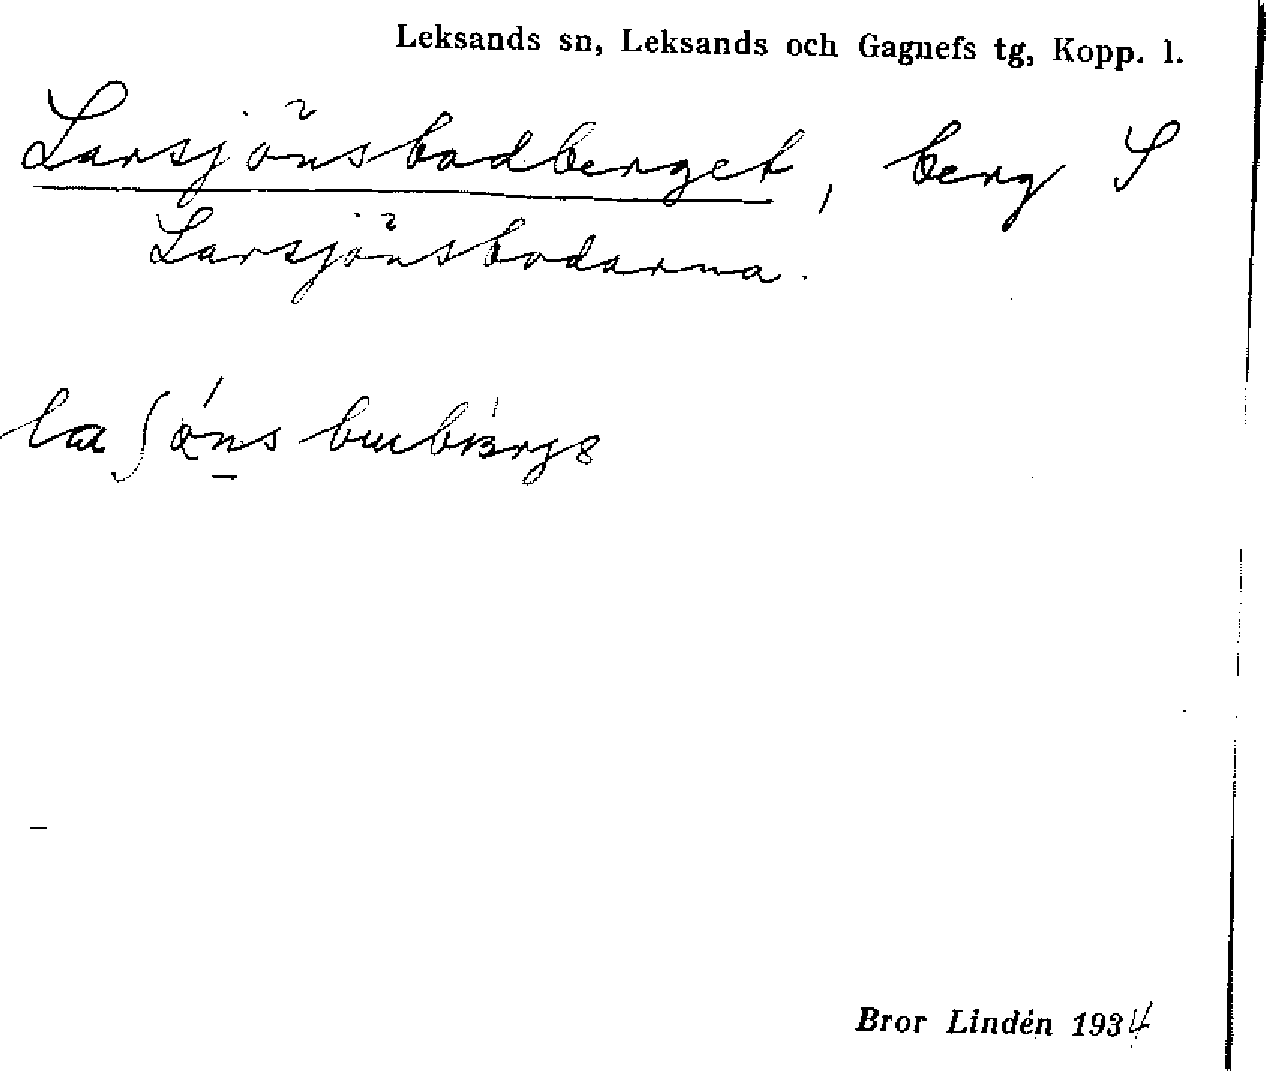 Leksands sn, Leksands och Gagnefs tg, Kopp. l.
Larsjönsbodberget, berg S
Larsjönsbodarna.
Bror Lindén 1934